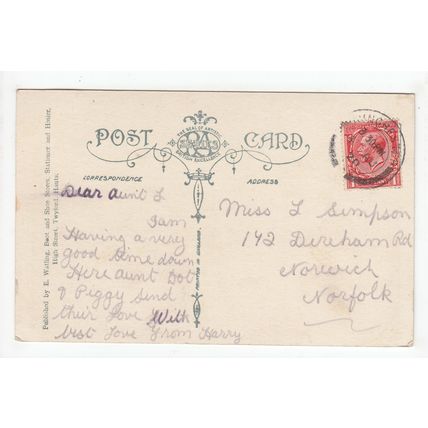 POST CARD
THE SEAL OF ARTISTIC
BRITISH EXCELLENCE
CORRESPONDENCE
ADDRESS
Dear Aunt L
I am
Having a very
good time down
Here aunt Dot
& Piggy Send
their Love With
best Love From Harry
Miss L Simpson
142 Dereham Rd
Norwich
Norfolk
Published by E. Watling, Boot and Shoe Stores, Stationer and Hosier,
High Street, Twyford, Hants.
PRINTED IN ENGLAND